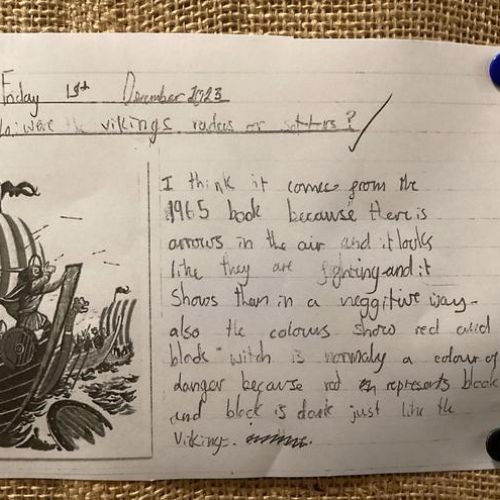 Friday 1st December 2023
were the vikings raders or settlers?
I think it comes from the
1965 book because there is
arrows in the air and it looks
like they are fighting and it
shows them in a neggitive way.
also the colours show red and
black witch is normaly a colour of
danger because red represents blood
and black is dark just like the
Vikings.